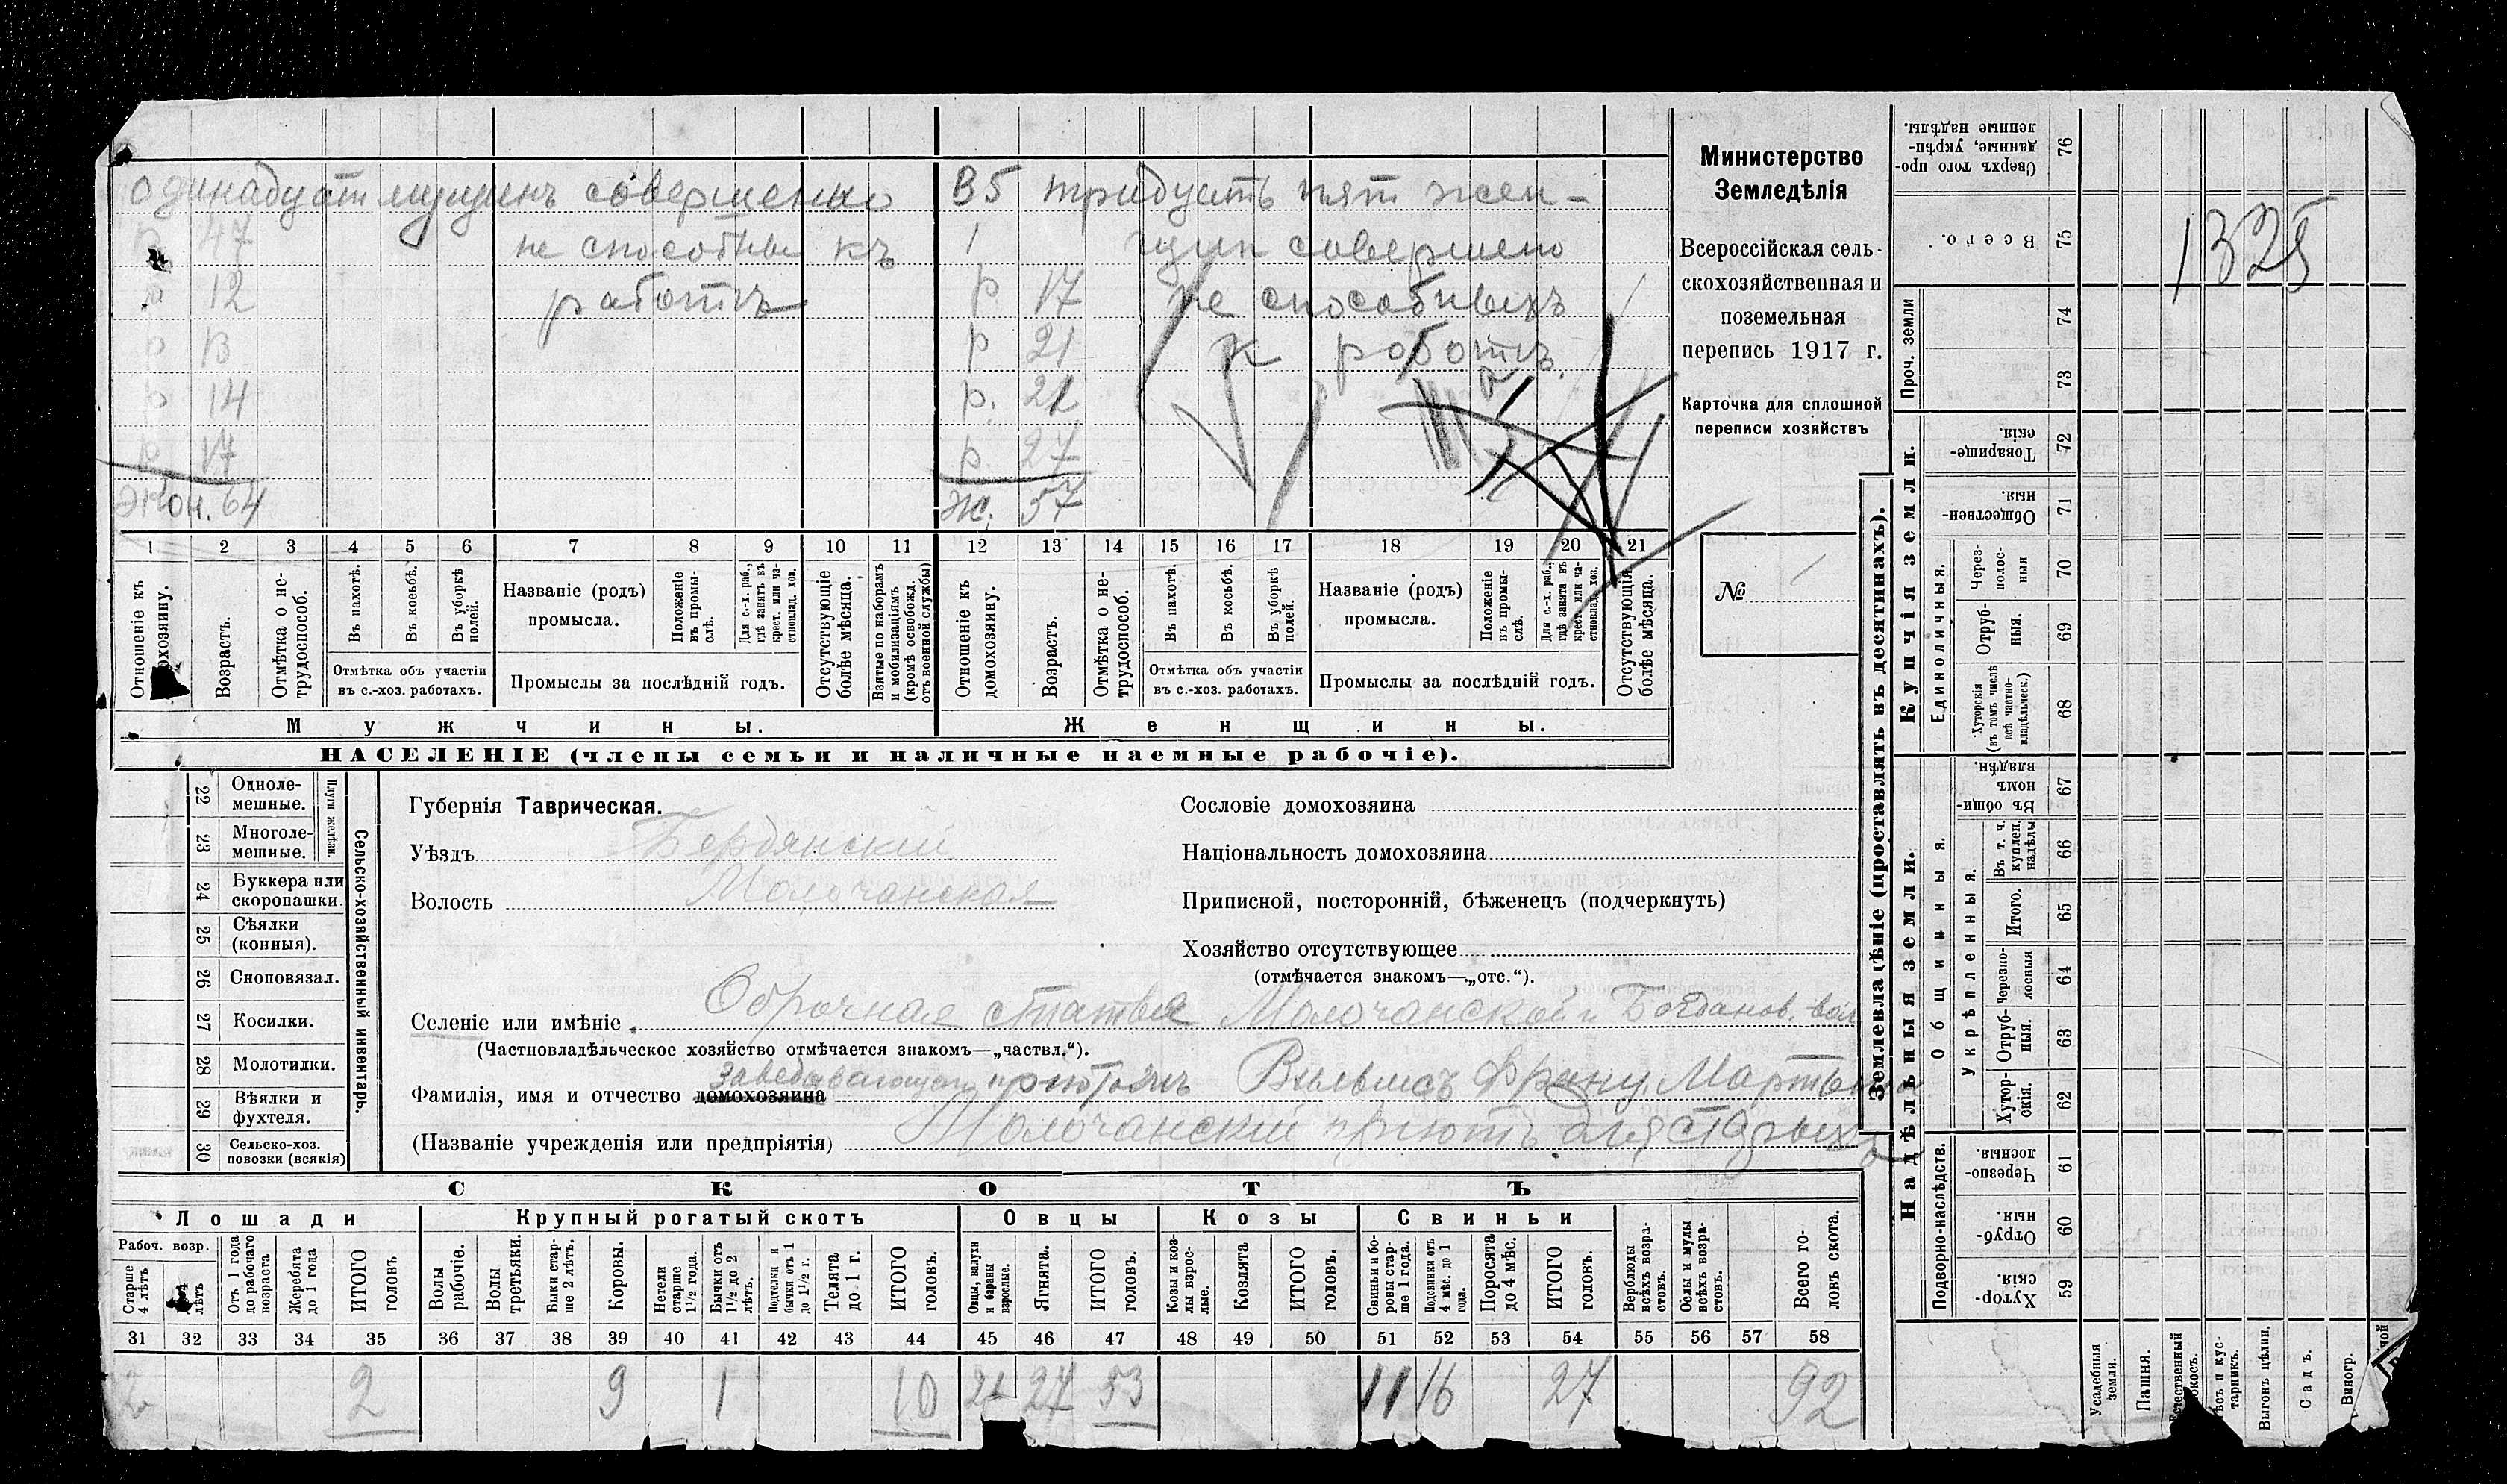 одинадцат мущинъ совершенно
В5 тридцать пят жен-
47
не способные къ
1
щин совершено
12
работъ
р 17
не способныхъ
р В
р 21
к роботъ.
р 14
р. 21
р. 17
р. 27
Экон. 64
Ж. 57
1 2 3 4 5 6 7 8 9 10 11 12 13 14 15 16 17 18 19 20 21
Отношеніе къ домохозяину.
Возрастъ.
Отмѣтка о не-трудоспособ.
Въ пахотѣ.
Въ косьбѣ.
Въ уборкѣ полей.
Отмѣтка объ участіи
въ с.-хоз. работахъ.
Названіе (родъ)
промысла.
Положеніе въ промы-слѣ.
Для с.-х. раб., гдѣ занятъ въ крест. или ча-стновлад. хоз.
Промыслы за послѣдній годъ.
Отсутствующіе болѣе мѣсяца.
Взятые по наборамъ и мобилизаціямъ (кромѣ освобожд. отъ военной службы)
Отношеніе къ домохозяину.
Возрастъ.
Отмѣтка о не-трудоспособ.
Въ пахотѣ.
Въ косьбѣ.
Въ уборкѣ полей.
Отмѣтка объ участіи
въ с.-хоз. работахъ.
Названіе (родъ)
промысла.
Положеніе въ промы-слѣ.
Для с.-х. раб., гдѣ занята въ крест. или ча-стновлад. хоз.
Промыслы за послѣдній годъ.
Отсутствующія болѣе мѣсяца.
Мужчины.
Женщины.
НАСЕЛЕНІЕ (члены семьи и наличные наемные рабочіе).
Министерство
Земледѣлія
Всероссійская сель-
скохозяйственная и
поземельная
перепись 1917 г.
Карточка для сплошной
переписи хозяйствъ
№ 1
22 Одноле-мешные.
23 Многоле-мешные.
Плуги желѣзн.
24 Буккера или скоропашки.
25 Сѣялки (конныя).
26 Сноповязал.
27 Косилки.
28 Молотилки.
29 Вѣялки и фухтеля.
30 Сельско-хоз. повозки (всякія)
Сельско-хозяйственный инвентарь.
Губернія Таврическая.
Уѣздъ Бердянскій
Волость Молочанская
Сословіе домохозяина
Національность домохозяина
Приписной, посторонній, бѣженецъ (подчеркнуть)
Хозяйство отсутствующее
(отмѣчается знакомъ—„отс.“).
Селеніе или имѣніе Оброчная статья Молочанской и Богданов. вол
(Частновладѣльческое хозяйство отмѣчается знакомъ—„частвл.“).
Фамилія, имя и отчество домохозяина завѣдывающ. пріютомъ Вильмсъ Франц Мартын
(Названіе учрежденія или предпріятія) Молочанскій пріютъ для старыхъ
СКОТЪ
Лошади
Крупный рогатый скотъ
Овцы
Козы
Свиньи
Рабоч. возр.
Старше 4 лѣтъ
лѣтъ
Отъ 1 года до рабочаго возраста
Жеребята до 1 года
ИТОГО головъ
Волы рабочіе.
Волы третьяки.
Быки стар-ше 2 лѣтъ.
Коровы.
Нетели старше 1½ года.
Бычки отъ 1½ до 2 лѣтъ.
Подтелки и бычки отъ 1 до 1½ г.
Телята до 1 г.
ИТОГО головъ.
Овцы, валухи и бараны взрослые.
Ягнята.
ИТОГО головъ.
Козы и коз-лы взрос-лые.
Козлята
ИТОГО головъ.
Свиньи и бо-ровы стар-ше 1 года.
Подсвинки отъ 4 мѣс. до 1 года.
Поросята до 4 мѣс.
ИТОГО головъ.
Верблюды всѣхъ возра-стовъ.
Ослы и мулы всѣхъ возра-стовъ.
Всего го-ловъ скота.
31 32 33 34 35 36 37 38 39 40 41 42 43 44 45 46 47 48 49 50 51 52 53 54 55 56 57 58
2 2 9 1 10 27 53 11 16 27 92
Землевладѣніе (проставлять въ десятинахъ).
Купчія земли.
Надѣльныя земли.
Проч. земли
Единоличныя.
Общинныя.
Укрѣпленныя.
Подворно-наслѣдств.
76 Сверхъ того про-данные, укрѣп-ленные надѣлы.
75 Всего.
1325
74
73
72 Товарище-скія.
71 Обществен-ныя.
70 Через-полос-ныя
69 Отруб-ныя.
68 Хуторскія (въ томъ числѣ всѣ частно-владѣльческ.)
67 Въ общи-номъ владѣн.
66 Въ т. ч. куплен. надѣлы
65 Итого.
64 Черезпо-лосныя
63 Отруб-ныя.
62 Хутор-скія.
61 Черезпо-лосныя.
60 Отруб-ныя.
59 Хутор-скія.
Усадебныя земли.
Пашня.
Естественный покосъ.
Лѣсъ и кус-тарникъ.
Выгонъ цѣлин.
Садъ.
Виногр.